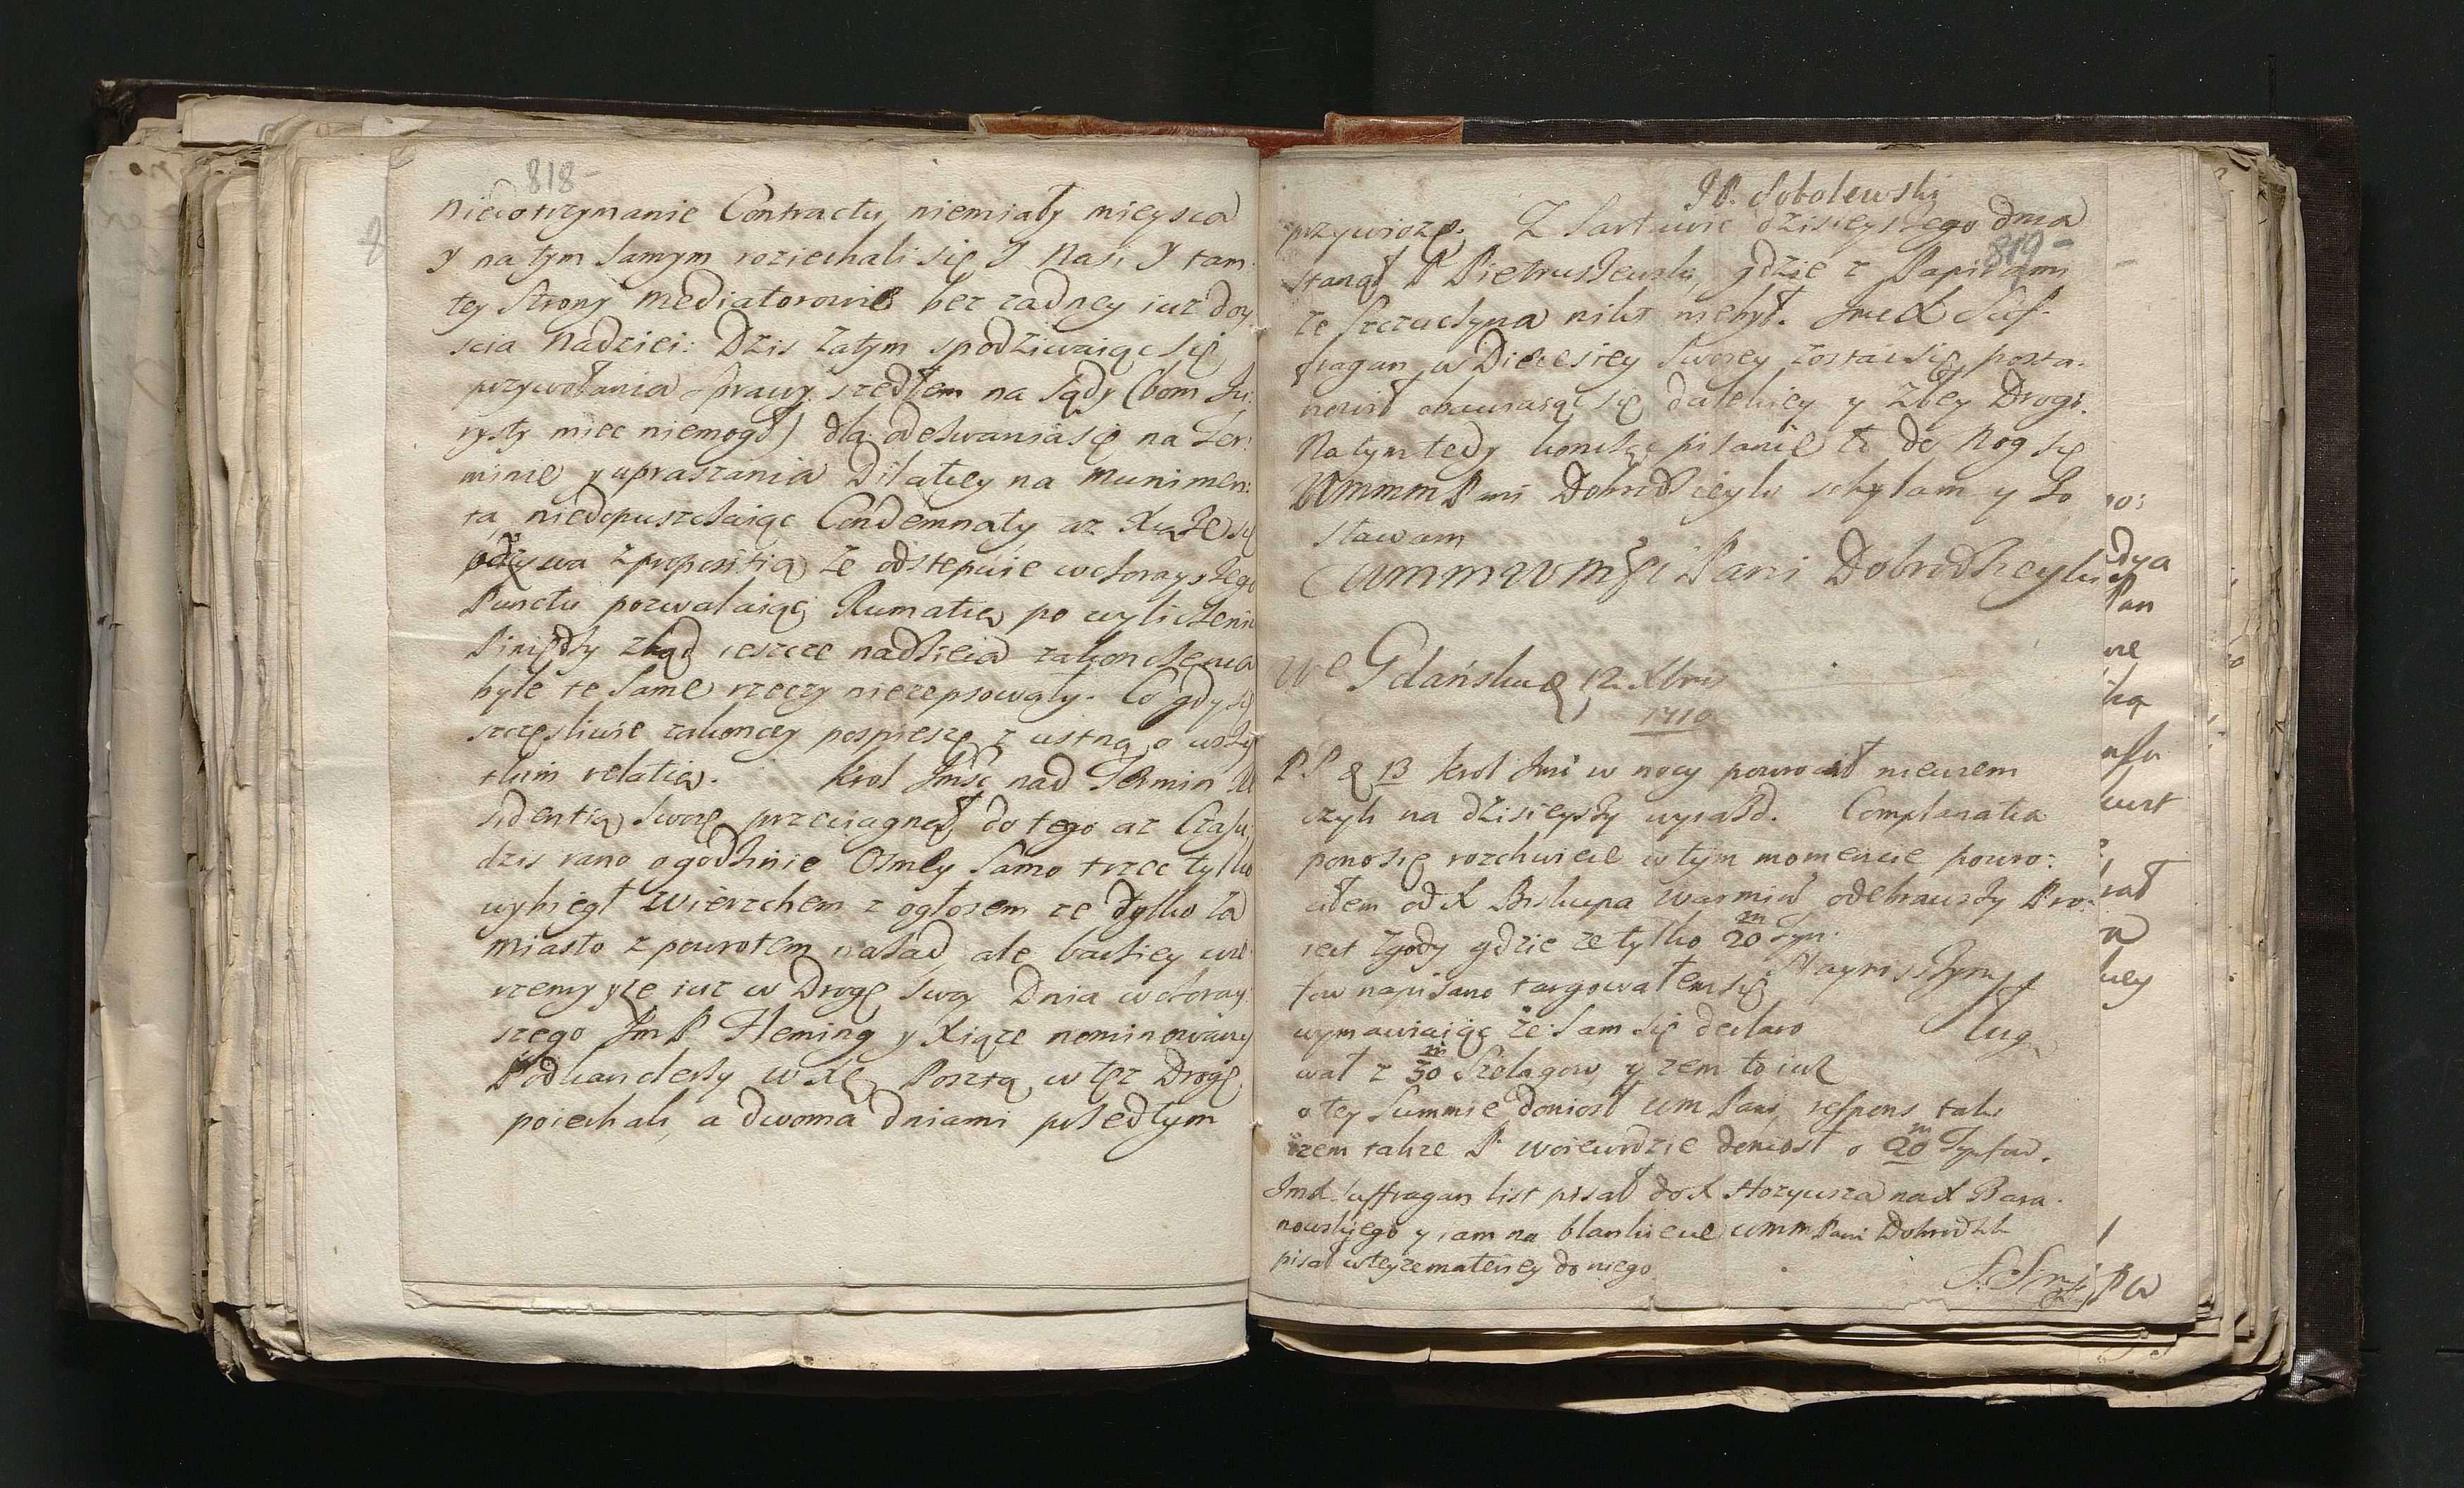 818-
niedotrzymanie Contractu, niemiały mieysca
y na tym samym roziechali się y Nasi y tam
tey Strony Mediatorowie bez zadney iuz doy
scia Nadziei: Dzis zatym spodziwaiąc się
przywołania sprawy szedłem na sądy (bom Ju,
rysty miec niemogł) dla odezwania się na Ter
minie y upraszania Dilatiey na munimen:
ta, niedopuszczaiąc Condemnaty az Xiąże się
odzywa z propositią ze odstępuie wtoraystego
Punctu pozwalaiąc Rumatią po wyliczeniu
Piniędzy zkąd ieszcze nadzieia zakonczenia
byle te same rzeczy niezepsowały. Co gdy się
szczęsliwie zakonczy pospieszę z ustną o wszy
stkim relatią. Krol Jmść nad Termin Re
sidentią swoię przeciągnął, do tego az Czasu,
dzis rano o godzinie Osmey samo trzec tylko
wybiegł Wierzchem z ogłosem ze tylko za
miasto z powrotem nazad, ale barziey wie
rzemy ze iuz w Drogę swą. Dnia wtoray
szego JmP Fleming y Xiąze nominowany
Podkanclerzy w Xę Posztą w tęz Drogę
poiechali, a dwoma dniami przedtym
J P. Sobolewski
819-
przywiozę. Z Sartowic dzisieyszego dnia
stanął P Pietruszewski, gdzie z Papirami
ze Szczuczyna nikt niebył. JmcX Suf-
fragan w Diecesiey swoiey zostac się posta-
nowił obawiaiąc się dalekiey y złey Drogi.
Na tym tedy konczę pisanie to do Nog się
WmmmPani Dobrodzieyki schylam y Zo
stawam
Wmmmwmści Pani Dobrodzieyki
we Gdańsku d 12 Xbris
1710
PS d 13 Krol Jmć w nocy powrocił niewiem
czyli na dzisieyszy wyiazd. Complanatia
pono się rozchwieie w tym momencie powro:
ciłem od X Biskupa Warmiń odebrawszy Pro-
iect zgody gdzie ze tylko 20 m Tyn:
fow napisano targowałem się
wymawiaiąc ze sam się declaro
wał z 50 m Szelagow, y zem to iuz
o tey Summie doniosł WmPani, respons taki
zem takze P Woiewodzie doniosł o 20 m Tynfow.
JmX Suffragan list pisał do X Hozyusza na X Bara-
nowskiego y iam na blankiecie WmmPani Dobrodzki
pisał w teyze materiey do niego
Nayniszszym
sług